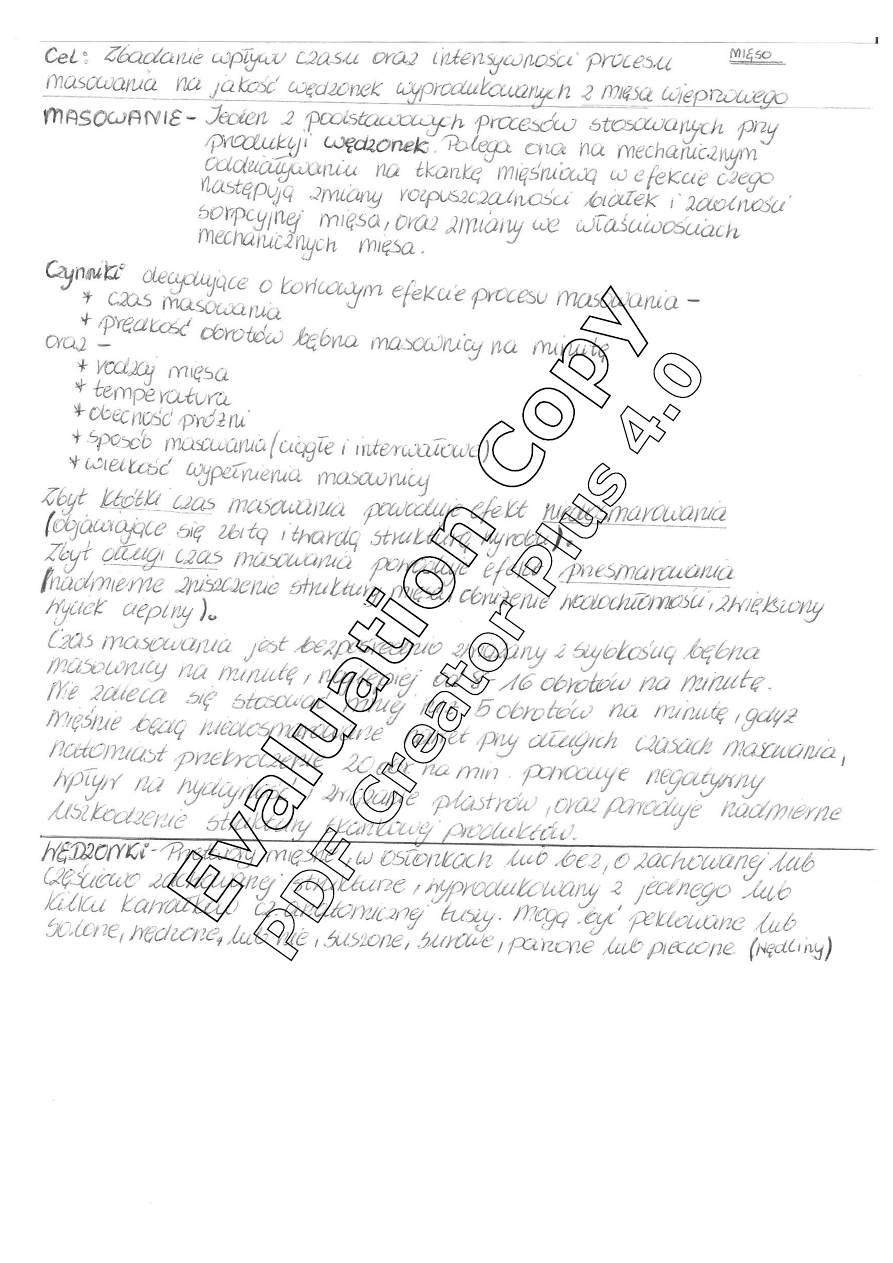 MIĘSO
Cel: Zbadanie wpływu czasu oraz intensywności procesu
masowania na jakość wędzonek wyprodukowanych z mięsa wieprzowego
MASOWANIE - Jeden z podstawowych procesów stosowanych przy
produkcji wędzonek. Polega ona na mechanicznym
oddziaływaniu na tkankę mięśniową w efekcie czego
następują zmiany rozpuszczalności białek i zdolności
sorpcyjnej mięsa, oraz zmiany we właściwościach
mechanicznych mięsa.
Czynniki decydujące o końcowym efekcie procesu masowania -
* czas masowania
* prędkość obrotów bębna masownicy na minutę
oraz -
* rodzaj mięsa
* temperatura
* obecność próżni
* sposób masowania (ciągłe i interwałowe)
* wielkość wypełnienia masownicy
Zbyt krótki czas masowania powoduje efekt niedosmarowania
(objawiające się zbitą i twardą strukturą wyrobu).
Zbyt długi czas masowania powoduje efekt przesmarowania
(nadmierne zniszczenie struktury mięsa, obniżenie wodochłonności, zwiększony
wyciek cieplny).
Czas masowania jest bezpośrednio związany z szybkością bębna
masownicy na minutę, najlepiej od 16 obrotów na minutę.
Nie zaleca się stosować mniej niż 5 obrotów na minutę, gdyż
mięśnie będą niedosmarowane nawet przy długich czasach masowania,
natomiast przekroczenie 20 obr na min. powoduje negatywny
wpływ na wydajność, plastrów, oraz powoduje nadmierne
uszkodzenie struktury tkankowej produktów.
WĘDZONKI - Przetwory mięsne, w osłonkach lub bez, o zachowanej lub
częściowo zachowanej strukturze, wyprodukowany z jednego lub
kilku kawałków cz. anatomicznej tuszy. Mogą być peklowane lub
solone, wędzone, lub nie, suszone, surowe, parzone lub pieczone (wędliny)
Evaluation Copy
PDF Creator Plus 4.0